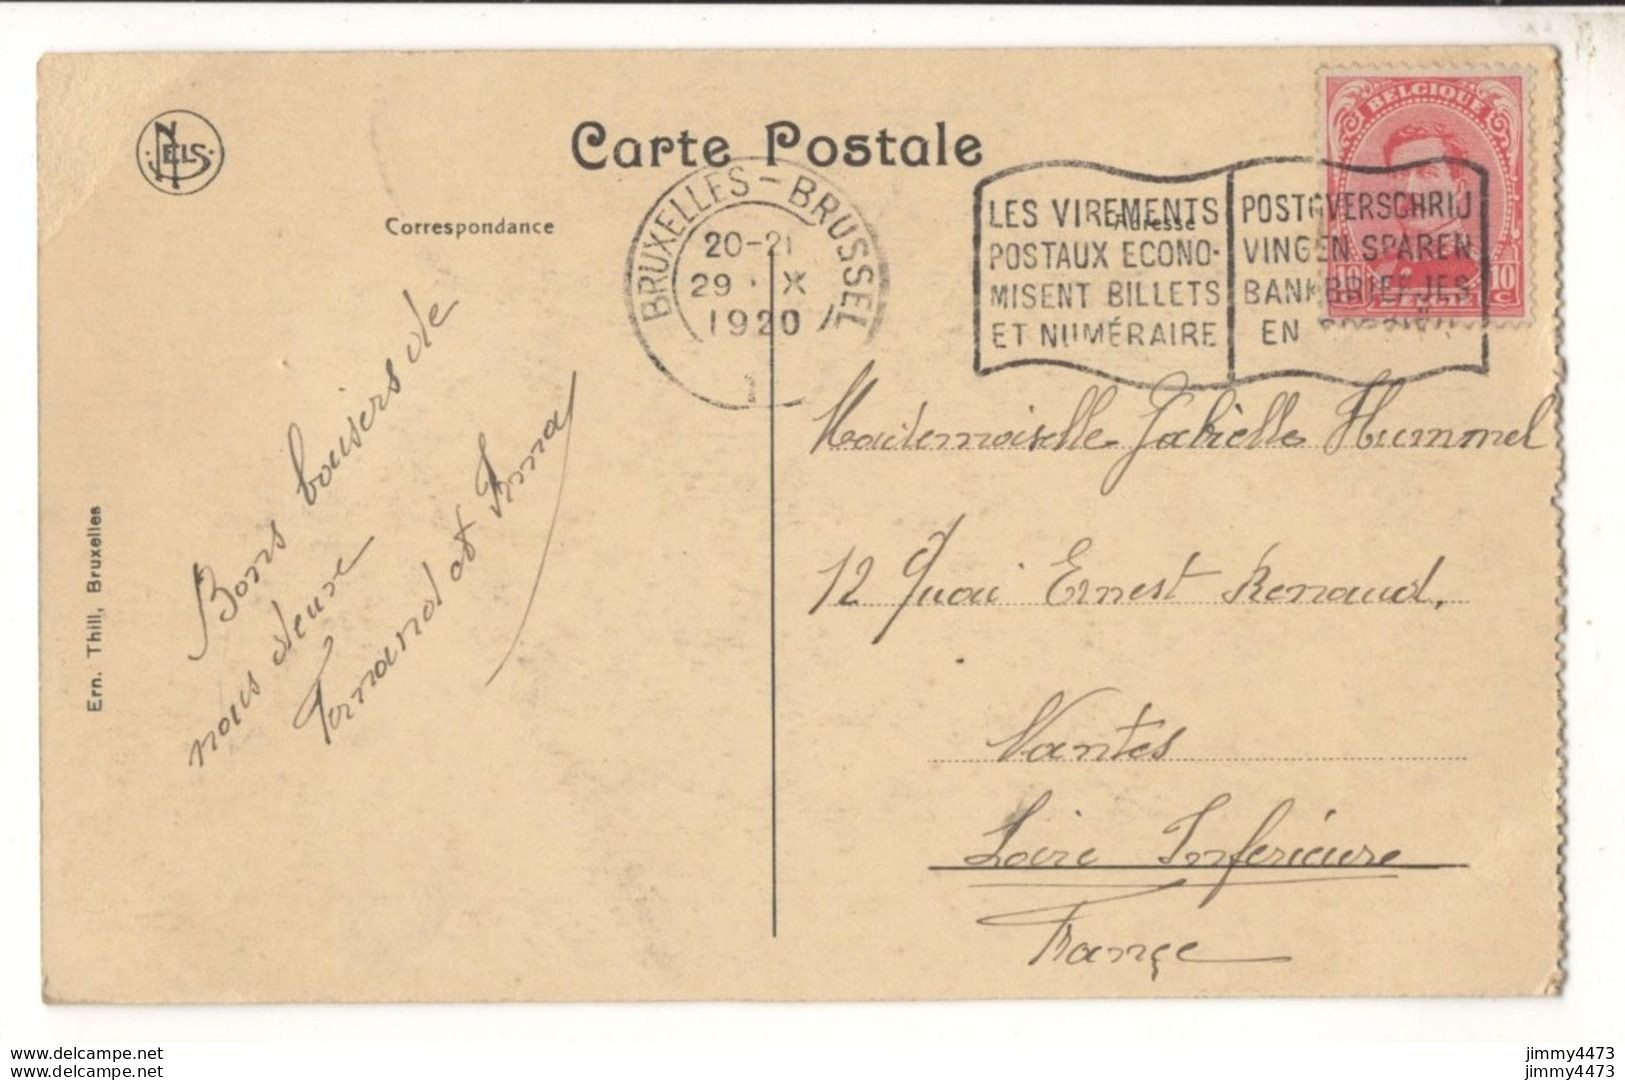 NELS
Carte Postale
Correspondance
Adresse
BRUXELLES - BRUSSEL
20-21
29 X
1920
LES VIREMENTS
POSTAUX ECONO-
MISENT BILLETS
ET NUMÉRAIRE
POSTOVERSCHRIJ
VINGEN SPAREN
BANKBRIEFJES
EN
BELGIQUE
10 10
C
Bons baisers de
nous deux
Fernand et
Ern. Thill, Bruxelles
Mademoiselle Gabrielle Hummel
12 Quai Ernest Renaud,
Nantes
Loire Inferieure
France
delcampe.net jimmy4473
delcampe.net jimmy4473